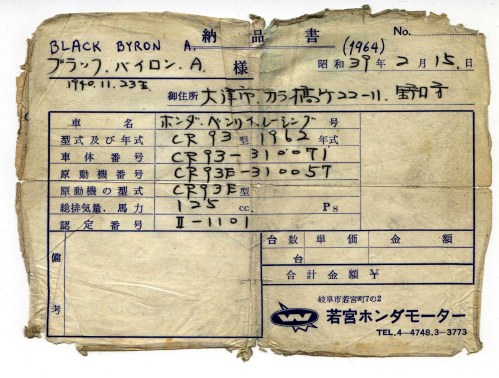 納品書 No.
BLACK BYRON A. (1964)
ブラック.バイロン.A. 様 昭和39年2月15.日
1940.11.23生
御住所 大津市.カラ橋町22-11.
車名 ホンダ.ベンリイ.レーシング号
型式及び年式 CR93型1962年式
車体番号 CR93-310071
原動機番号 CR93E-310057
原動機の型式 CR93E型
総排気量.馬力 125cc. Ps
認定番号 II-1101
備考
台数 単価 金額
台
合計金額 ¥
岐阜市若宮町7の2
W 若宮ホンダモーター
TEL.4-4748.3-3773